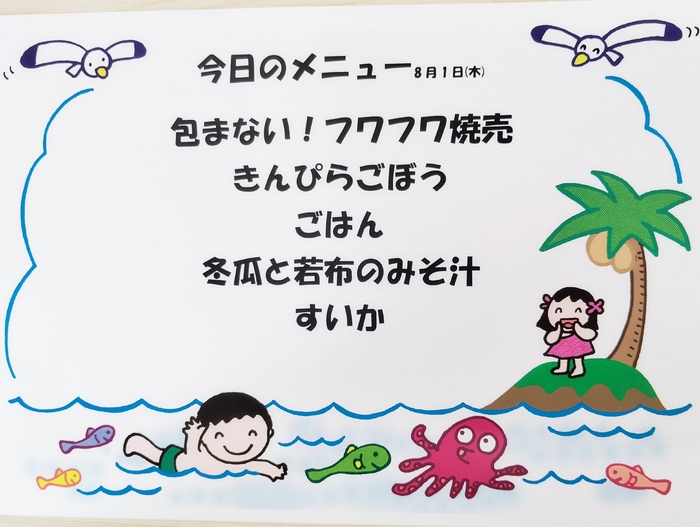 今日のメニュー8月1日(木)
包まない！フワフワ焼売
きんぴらごぼう
ごはん
冬瓜と若布のみそ汁
すいか